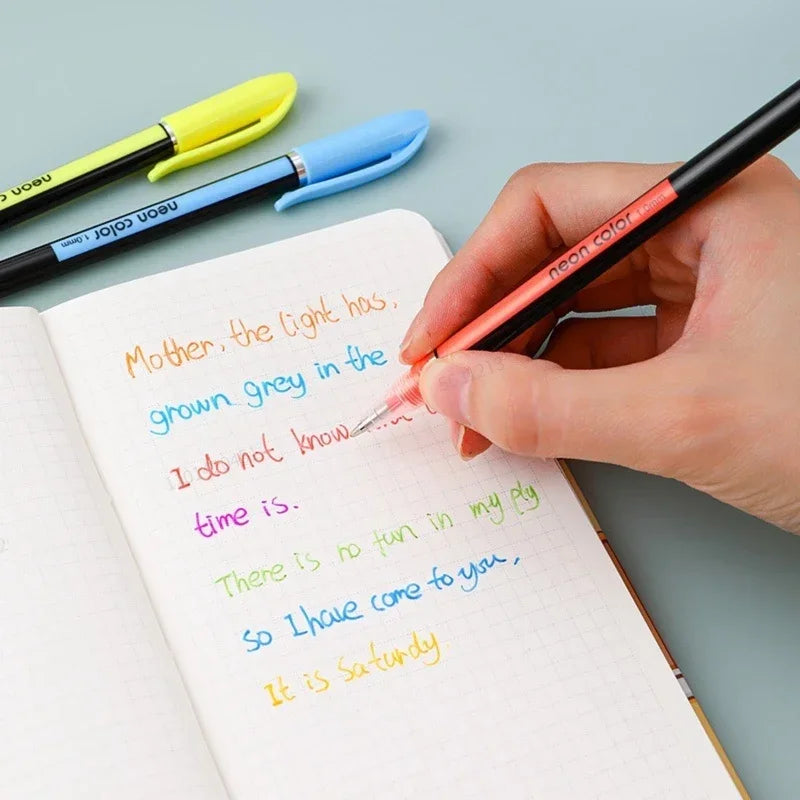 neon co
neon color 1.0mm
neon color 1.0mm
Mother, the light has,
grown grey in the
I do not know
time is.
There is no fun in my ply
so I have come to you,
It is Saturdy.